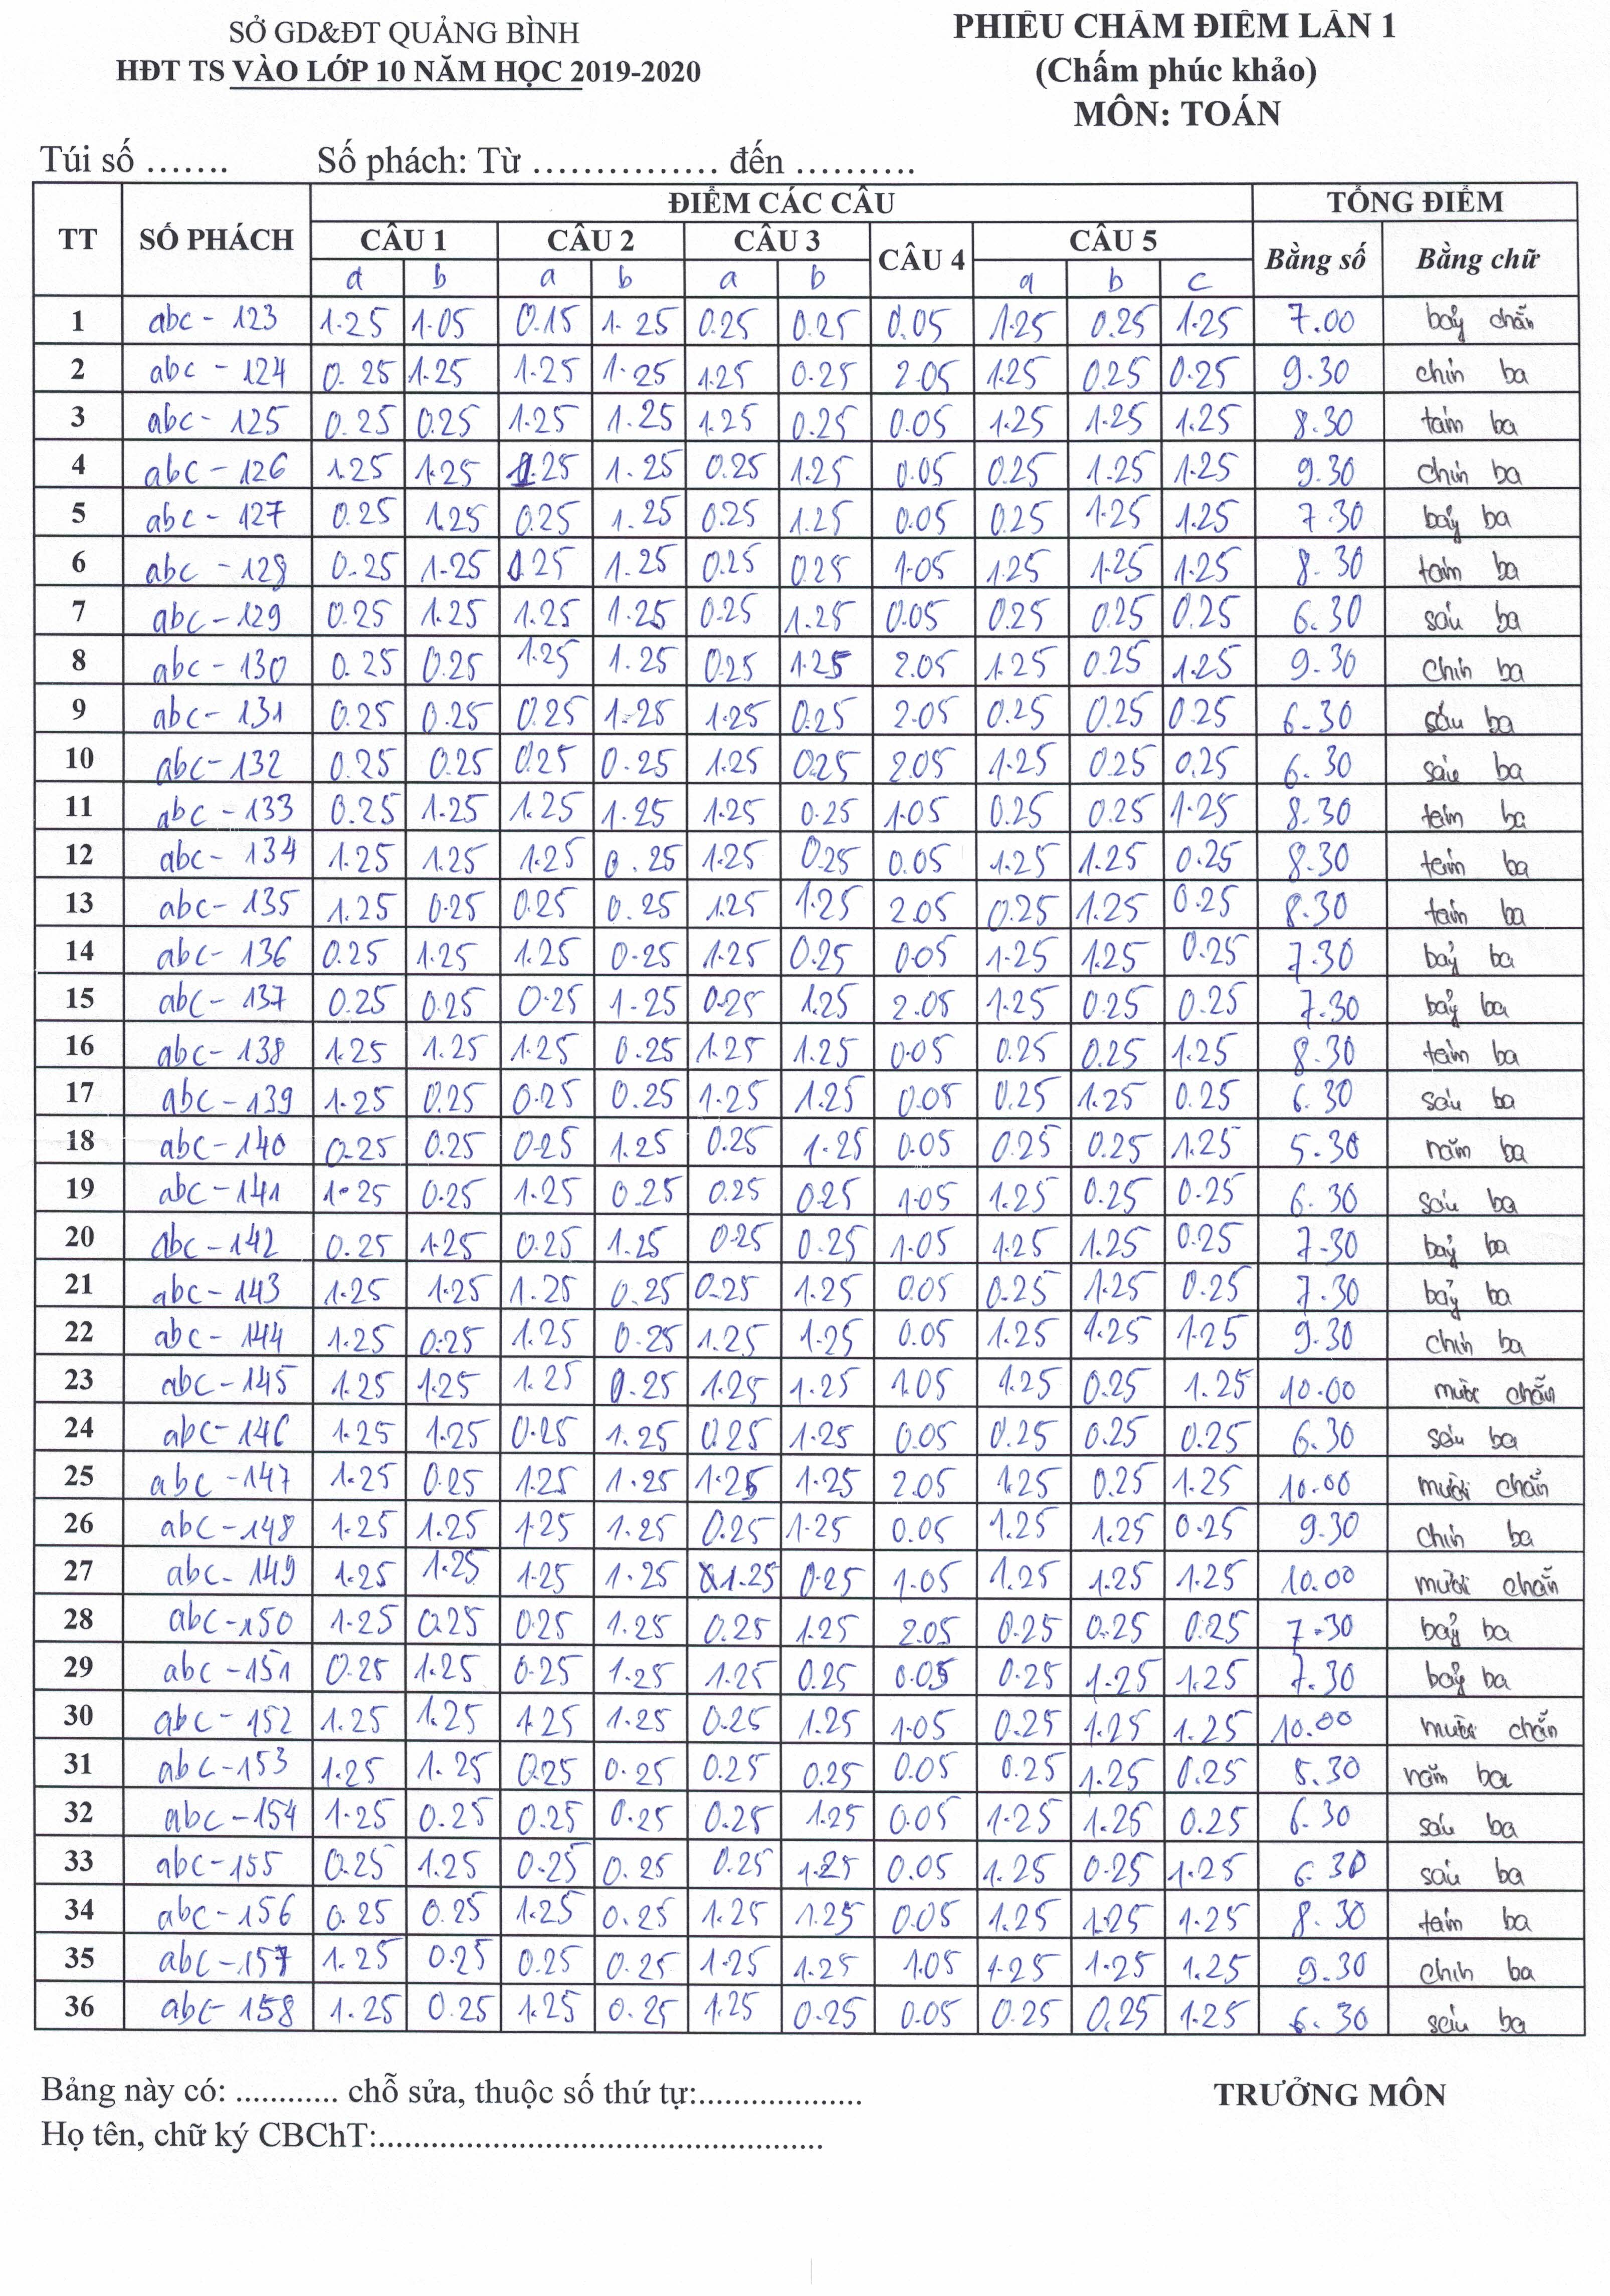 SỞ GD&ĐT QUẢNG BÌNH
HĐT TS VÀO LỚP 10 NĂM HỌC 2019-2020
PHIẾU CHẤM ĐIỂM LẦN 1
(Chấm phúc khảo)
MÔN: TOÁN
Túi số ....... Số phách: Từ ............... đến ..........
TT SỐ PHÁCH ĐIỂM CÁC CÂU TỔNG ĐIỂM
CÂU 1 CÂU 2 CÂU 3 CÂU 4 CÂU 5 Bằng số Bằng chữ
a b a b a b a b c
1 abc - 123 1.25 1.05 0.15 1.25 0.25 0.25 0.05 1.25 0.25 1.25 7.00 bảy chẵn
2 abc - 124 0.25 1.25 1.25 1.25 1.25 0.25 2.05 1.25 0.25 0.25 9.30 chín ba
3 abc - 125 0.25 0.25 1.25 1.25 1.25 0.25 0.05 1.25 1.25 1.25 8.30 tám ba
4 abc - 126 1.25 1.25 1.25 1.25 0.25 1.25 0.05 0.25 1.25 1.25 9.30 chín ba
5 abc - 127 0.25 1.25 0.25 1.25 0.25 1.25 0.05 0.25 1.25 1.25 7.30 bảy ba
6 abc - 128 0.25 1.25 0.25 1.25 0.25 0.25 1.05 1.25 1.25 1.25 8.30 tám ba
7 abc - 129 0.25 1.25 1.25 1.25 0.25 1.25 0.05 0.25 0.25 0.25 6.30 sáu ba
8 abc - 130 0.25 0.25 1.25 1.25 0.25 1.25 2.05 1.25 0.25 1.25 9.30 chín ba
9 abc - 131 0.25 0.25 0.25 1.25 1.25 0.25 2.05 0.25 0.25 0.25 6.30 sáu ba
10 abc - 132 0.25 0.25 0.25 0.25 1.25 0.25 2.05 1.25 0.25 0.25 6.30 sáu ba
11 abc - 133 0.25 1.25 1.25 1.25 1.25 0.25 1.05 0.25 0.25 1.25 8.30 tám ba
12 abc - 134 1.25 1.25 1.25 0.25 1.25 0.25 0.05 1.25 1.25 0.25 8.30 tám ba
13 abc - 135 1.25 0.25 0.25 0.25 1.25 1.25 2.05 0.25 1.25 0.25 8.30 tám ba
14 abc - 136 0.25 1.25 1.25 0.25 1.25 0.25 0.05 1.25 1.25 0.25 7.30 bảy ba
15 abc - 137 0.25 0.25 0.25 1.25 0.25 1.25 2.05 1.25 0.25 0.25 7.30 bảy ba
16 abc - 138 1.25 1.25 1.25 0.25 1.25 1.25 0.05 0.25 0.25 1.25 8.30 tám ba
17 abc - 139 1.25 0.25 0.25 0.25 1.25 1.25 0.05 0.25 1.25 0.25 6.30 sáu ba
18 abc - 140 0.25 0.25 0.25 1.25 0.25 1.25 0.05 0.25 0.25 1.25 5.30 năm ba
19 abc - 141 1.25 0.25 1.25 0.25 0.25 0.25 1.05 1.25 0.25 0.25 6.30 sáu ba
20 abc - 142 0.25 1.25 0.25 1.25 0.25 0.25 1.05 1.25 1.25 0.25 7.30 bảy ba
21 abc - 143 1.25 1.25 1.25 0.25 0.25 1.25 0.05 0.25 1.25 0.25 7.30 bảy ba
22 abc - 144 1.25 0.25 1.25 0.25 1.25 1.25 0.05 1.25 1.25 1.25 9.30 chín ba
23 abc - 145 1.25 1.25 1.25 0.25 1.25 1.25 1.05 1.25 0.25 1.25 10.00 mười chẵn
24 abc - 146 1.25 1.25 0.25 1.25 0.25 1.25 0.05 0.25 0.25 0.25 6.30 sáu ba
25 abc - 147 1.25 0.25 1.25 1.25 1.25 1.25 2.05 1.25 0.25 1.25 10.00 mười chẵn
26 abc - 148 1.25 1.25 1.25 1.25 0.25 1.25 0.05 1.25 1.25 0.25 9.30 chín ba
27 abc - 149 1.25 1.25 1.25 1.25 1.25 0.25 1.05 1.25 1.25 1.25 10.00 mười chẵn
28 abc - 150 1.25 0.25 0.25 1.25 0.25 1.25 2.05 0.25 0.25 0.25 7.30 bảy ba
29 abc - 151 0.25 1.25 0.25 1.25 1.25 0.25 0.05 0.25 1.25 1.25 7.30 bảy ba
30 abc - 152 1.25 1.25 1.25 1.25 0.25 1.25 1.05 0.25 1.25 1.25 10.00 mười chẵn
31 abc - 153 1.25 1.25 0.25 0.25 0.25 0.25 0.05 0.25 1.25 0.25 5.30 năm ba
32 abc - 154 1.25 0.25 0.25 0.25 0.25 1.25 0.05 1.25 1.25 0.25 6.30 sáu ba
33 abc - 155 0.25 1.25 0.25 0.25 0.25 1.25 0.05 1.25 0.25 1.25 6.30 sáu ba
34 abc - 156 0.25 0.25 1.25 0.25 1.25 1.25 0.05 1.25 1.25 1.25 8.30 tám ba
35 abc - 157 1.25 0.25 0.25 0.25 1.25 1.25 1.05 1.25 1.25 1.25 9.30 chín ba
36 abc - 158 1.25 0.25 1.25 0.25 1.25 0.25 0.05 0.25 0.25 1.25 6.30 sáu ba
Bảng này có: ............ chỗ sửa, thuộc số thứ tự:...................
TRƯỞNG MÔN
Họ tên, chữ ký CBChT:....................................................